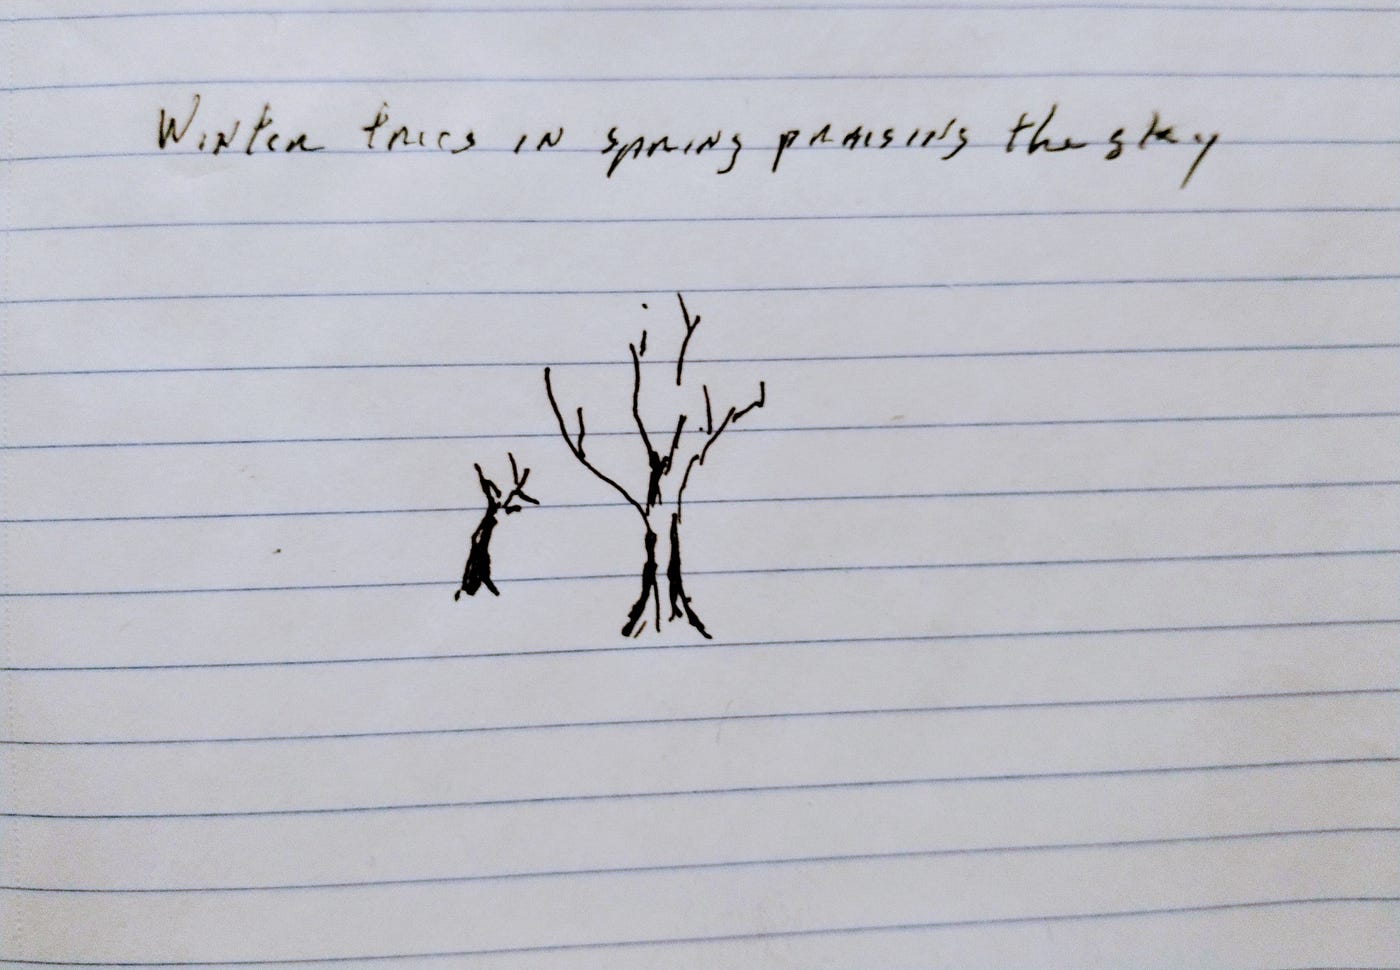 Winter trees in spring praising the sky